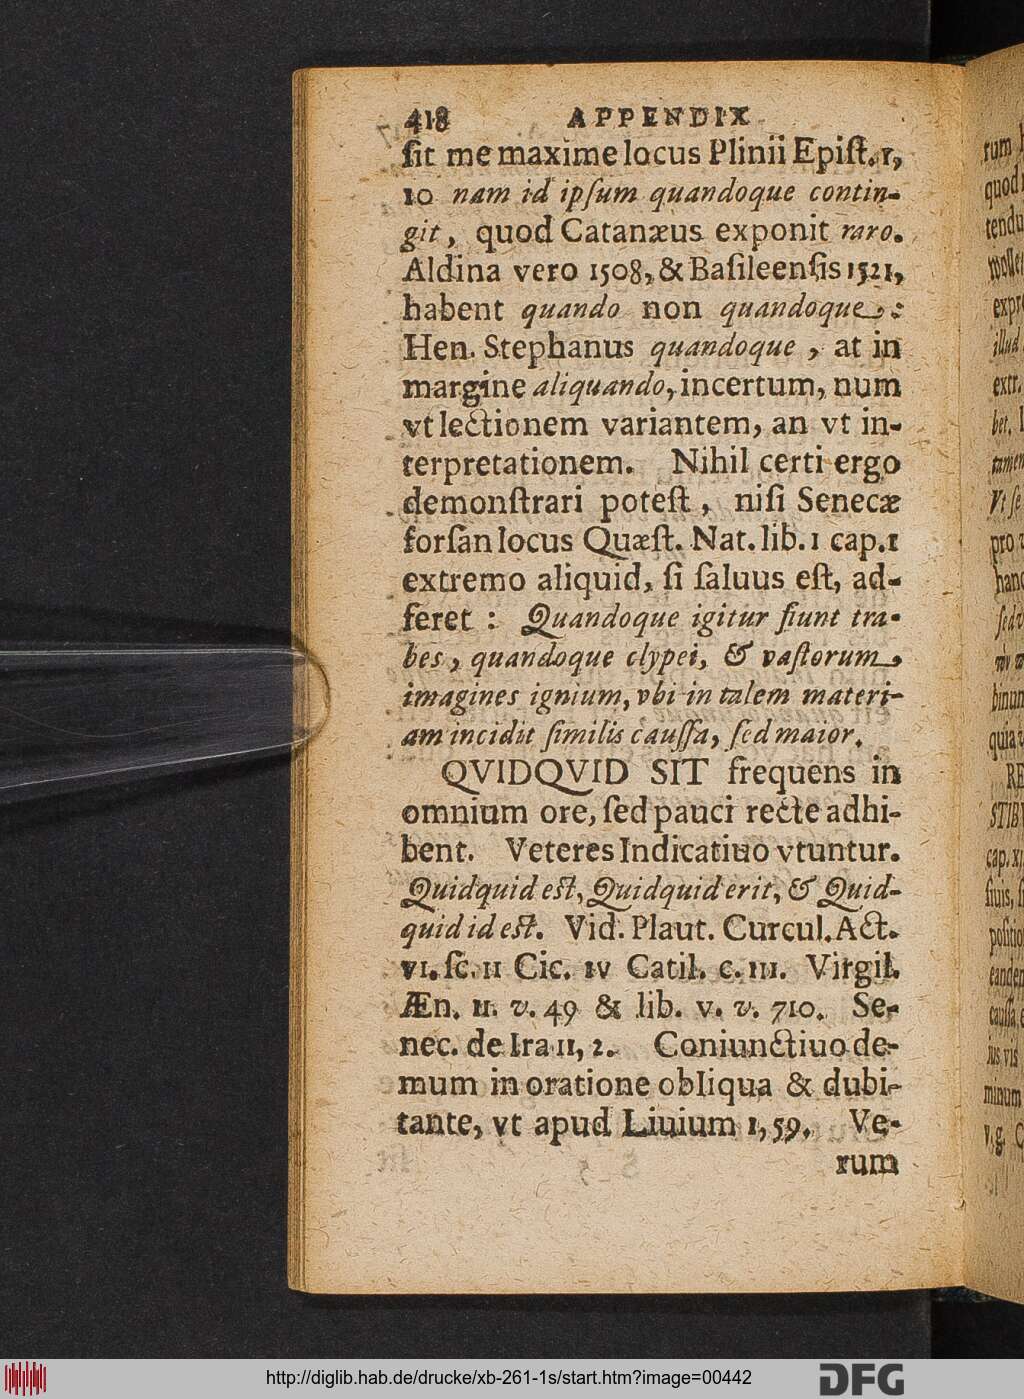 418 APPENDIX
ſit me maxime locus Plinii Epiſt. 1,
10 nam id ipſum quandoque contin-
git, quod Catanæus exponit raro.
Aldina vero 1508, & Baſileenſis 1521,
habent quando non quandoque:
Hen. Stephanus quandoque, at in
margine aliquando, incertum, num
vt lectionem variantem, an vt in-
terpretationem. Nihil certi ergo
demonſtrari poteſt, niſi Senecæ
forſan locus Quæſt. Nat. lib. 1 cap. 1
extremo aliquid, ſi ſaluus eſt, ad-
feret: Quandoque igitur fiunt tra-
bes, quandoque clypei, & vaſtorum
imagines ignium, vbi in talem materi-
am incidit ſimilis cauſſa, ſed maior.
QVIDQVID SIT frequens in
omnium ore, ſed pauci recte adhi-
bent. Veteres Indicatiuo vtuntur.
Quidquid eſt, Quidquid erit, & Quid-
quid id eſt. Vid. Plaut. Curcul. Act.
VI. ſc. II Cic. IV Catil. c. III. Virgil.
Æn. II. v. 49 & lib. V. v. 710. Se-
nec. de Ira II, 2. Coniunctiuo de-
mum in oratione obliqua & dubi-
tante, vt apud Liuium 1, 59. Ve-
rum
http://diglib.hab.de/drucke/xb-261-1s/start.htm?image=00442
DFG